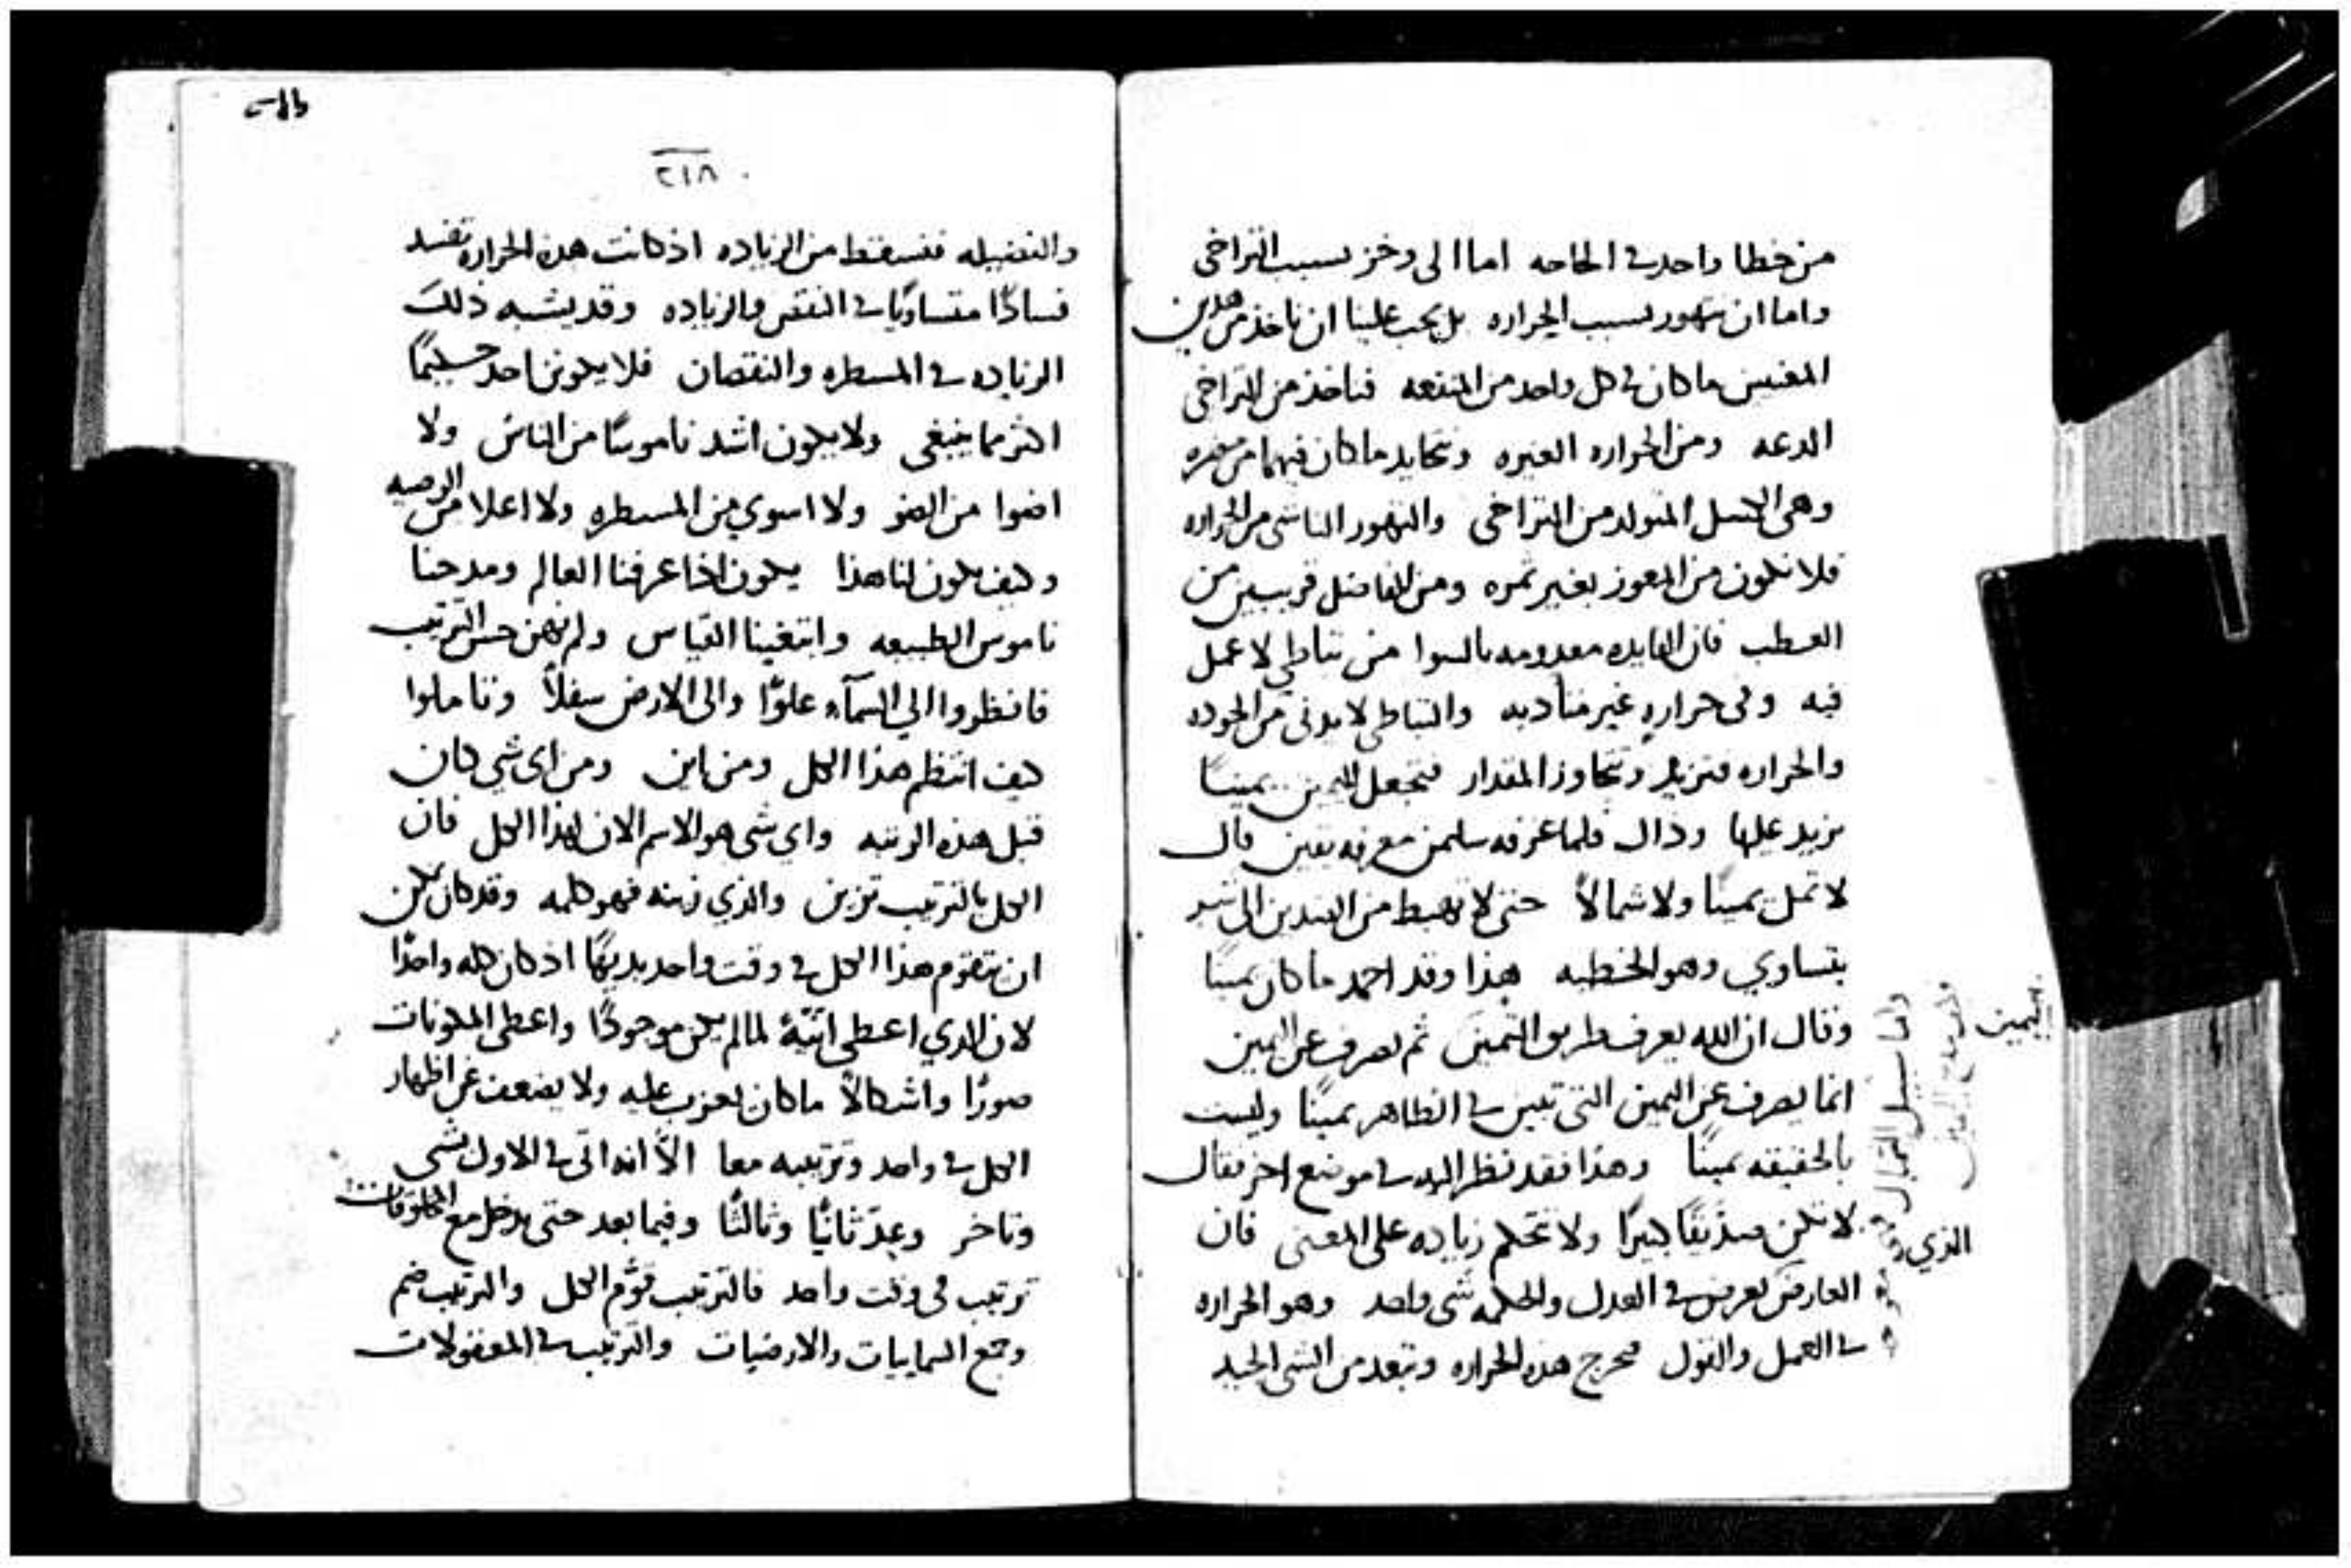 من خطا واحد في الحاجه اما الى وخز بسبب التراخى
واما ان نتهور بسبب الحراره بل يجب علينا ان ناخذ من هذين
المعنيين ما كان في كل واحد من المنفعه فناخذ من التراخى
الدعه ومن الحراره الغيره ونحايد ما كان فيهما من مضره
وهى الكسل المتولد من التراخى والتهور الناشى من الحراره
فلا نكون من العوز بغير ثمره ومن الفاضل قريبين من
العطب فان الفايده معدومه بالسوا من تباطى لا عمل
فيه وفى حرارة غير متأدبه والتباطى لا يدنى من الجوده
والحراره فتزيد وتتجاوز المقدار فتجعل لليمين يمينًا
يزيد عليها وذاك فلما عرفه سليمن معرفه يقين قال
لا تمل يمينًا ولا شمالاً حتى لا تهبط من الضدين الى شر
يتساوي وهو الخطيه هذا وقد احمد ما كان يمينًا
وقال ان الله يعرف طريق اليمين ثم يصرف عن اليمين
انما يصرف عن اليمين التى تبين في الظاهر يمينًا وليست
بالحقيقه يمينًا وهذا فقد نظر اليه في موضع اخر فقال
لا تكن صدّيقًا كثيرًا ولا تتحكم زياده على المعنى فان
العارض يعرض في العدل والحكمه شى واحد وهو الحراره
في العمل والقول فتخرج هذه الحراره وتبعد من الشى الجيد
بيمين
الذي
٢١٨
والفضيله فتسقط من الزياده اذ كانت هذه الحراره تفسد
فسادًا متساويًا في النقص والزياده وقد يشبه ذلك
الزياده في المسطره والنقصان فلا يكونن احد حكيمًا
اكثر مما ينبغى ولا يكون اشد ناموسًا من الناموس ولا
اضوا من الضو ولا اسوي من المسطره ولا اعلا من الوصيه
وكيف يكون لنا هذا يكون اذا عرفنا العالم ومدحنا
ناموس الطبيعه وابتغينا القياس ولم نهن حسن الترتيب
فانظروا الي السمآء علوًا والى الارض سفلاً وتاملوا
كيف انتظم هذا الكل ومن اين ومن اى شي كان
قبل هذه الرتبه واي شى هو الاسم الان لهذا الكل فان
الكل بالترتيب تزين والذي زينه فهو كلمه وقد كان يمكن
ان يتقوم هذا الكل في وقت واحد بديهًا اذ كان كله واحدًا
لان الذي اعطى انّيّة لما لم يكن موجودًا واعطى المكونات
صورًا واشكالاً ما كان يعزب عليه ولا يضعف عن اظهار
الكل في واحد وترتيبه معا الاّ انه اتى في الاول شى
وتاخر وعدّ ثانيًا وثالثًا وفيما بعد حتى يدخل مع المخلوقات
ترتيب فى وقت واحد فالترتيب قوّم الكل والترتيب ضم
وجمع السماييات والارضيات والترتيب في المعقولات